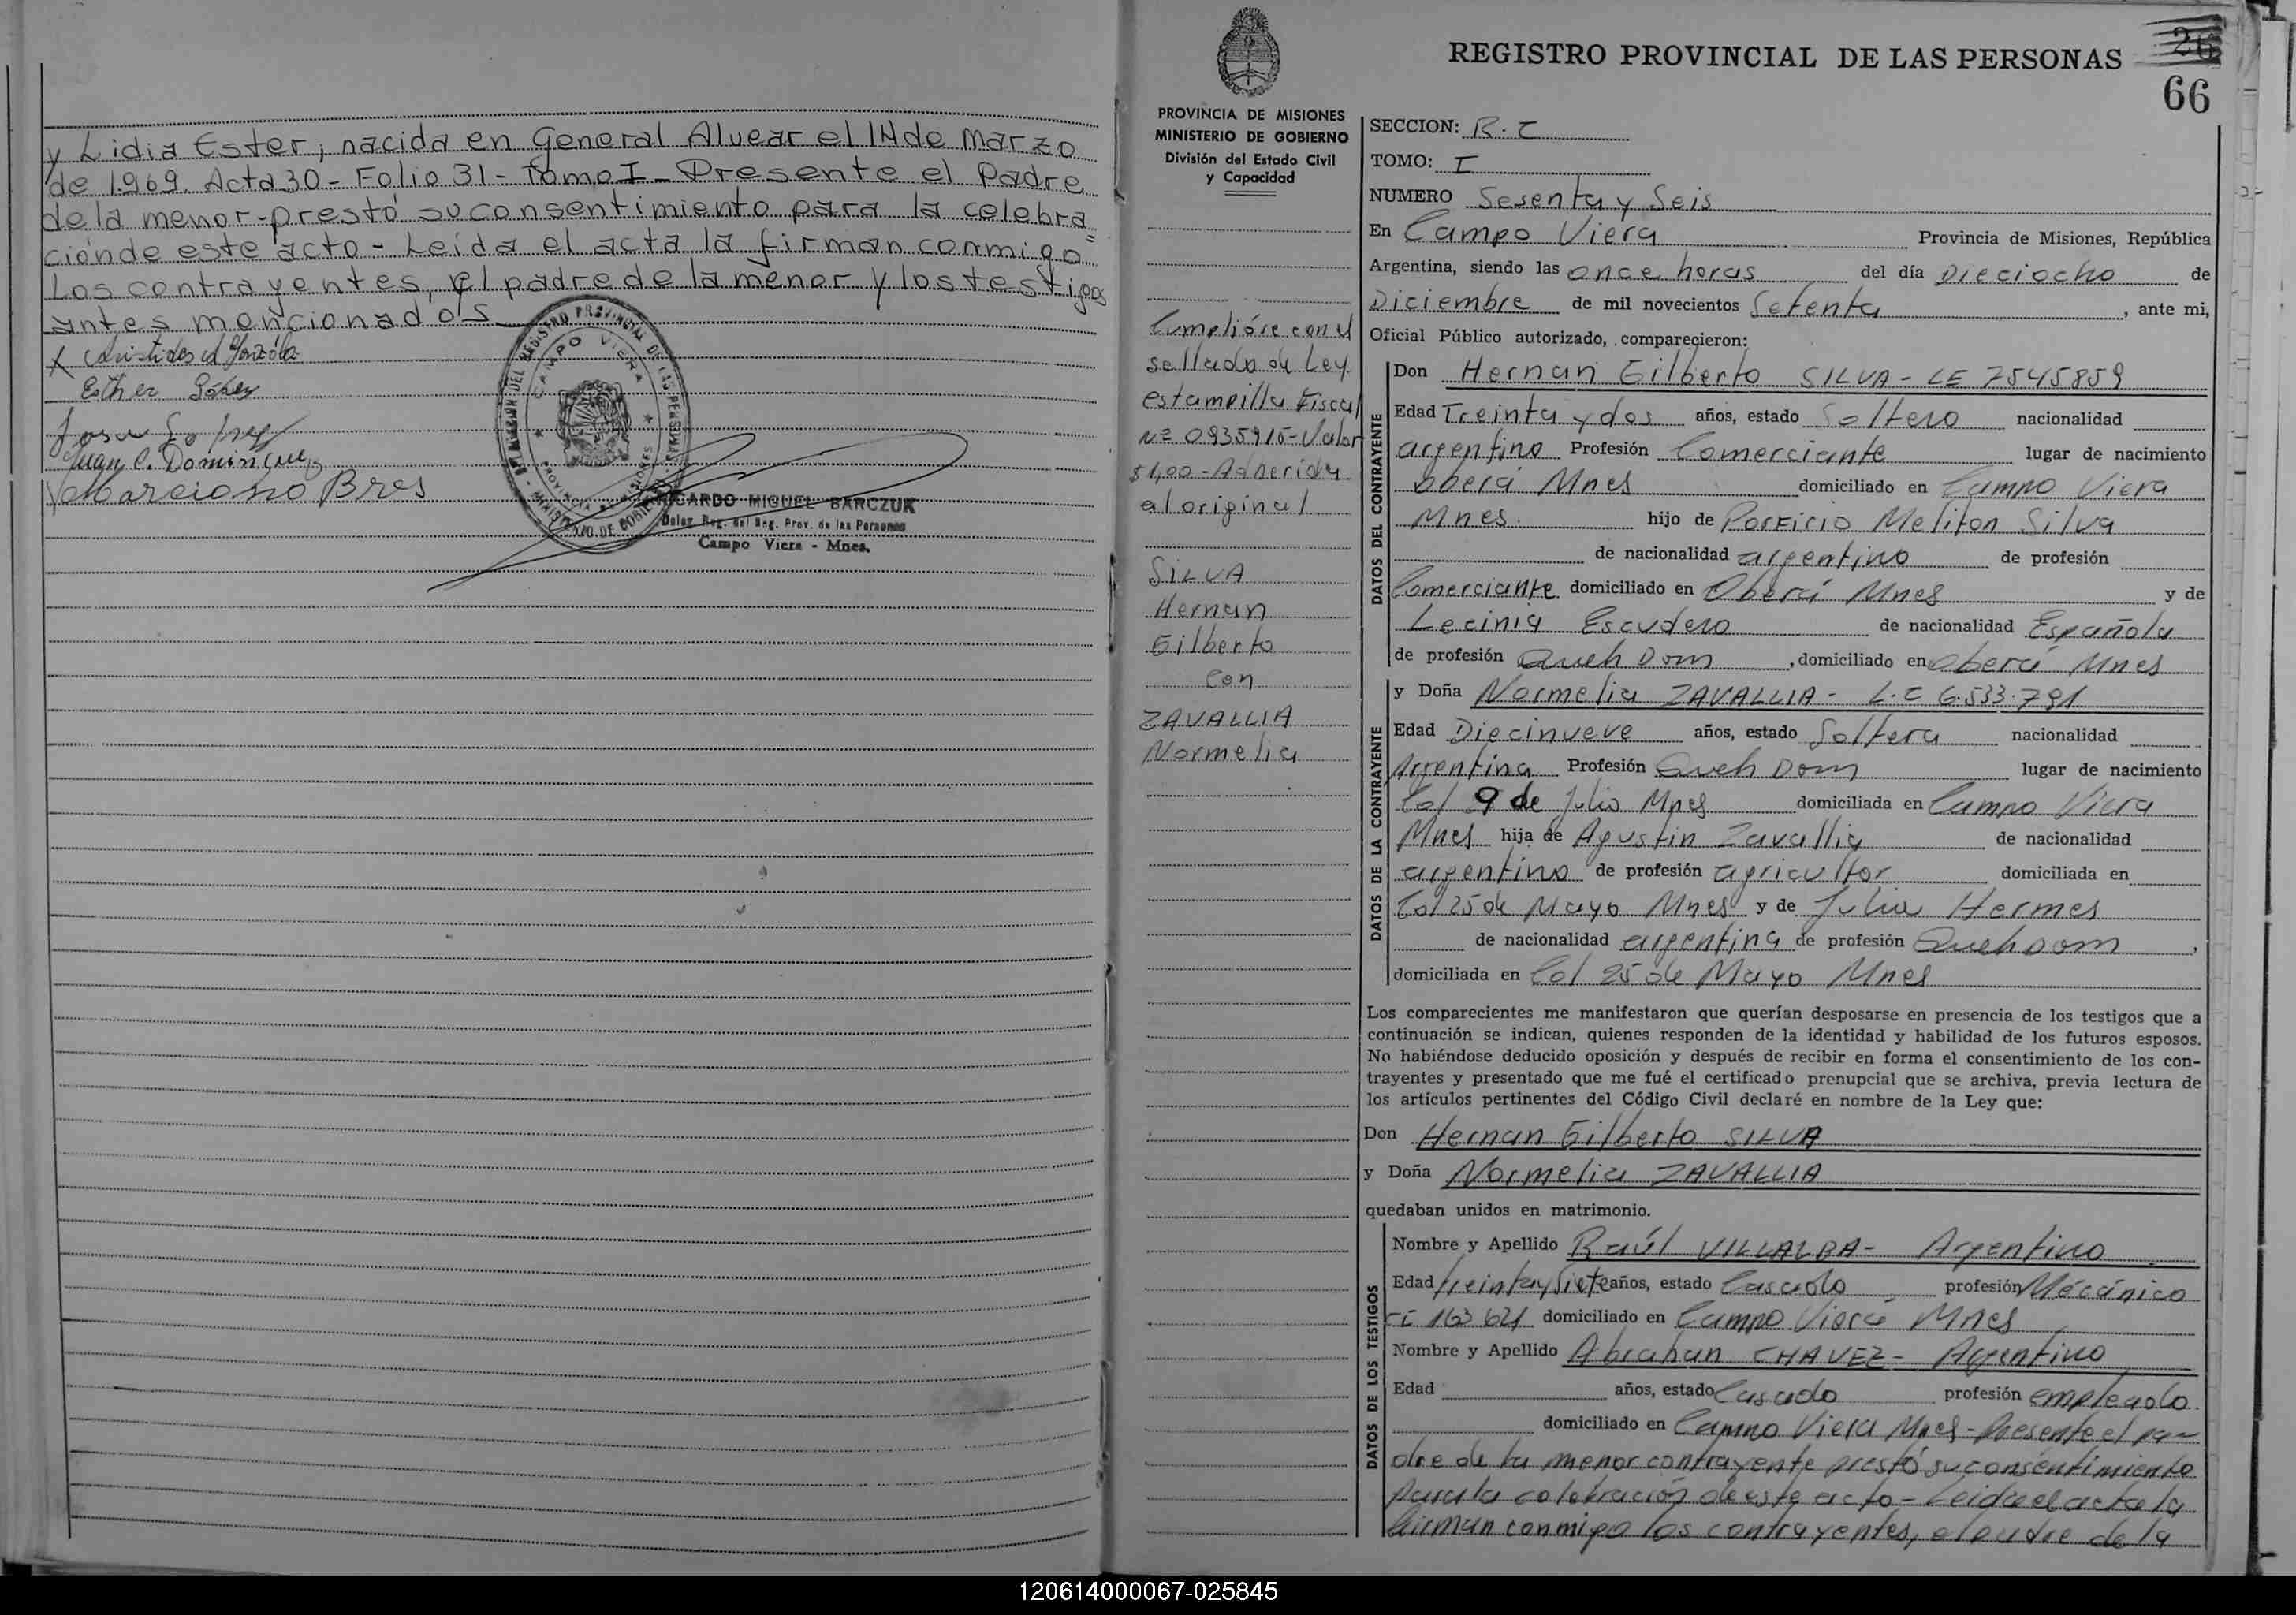 y Lidia Ester, nacida en General Alvear el 14 de Marzo
de 1.969. Acta 30 - Folio 31 - Tomo I - Presente el Padre
de la menor - prestó su consentimiento para la celebra
ción de este acto - Leída el acta la firman conmigo
Los contrayentes, el padre de la menor y los testigos
antes mencionados
Esther
Juan C. Dominguez
Marciano Bres
CAMPO VIERA
RICARDO MIGUEL BARCZUK
Deleg. Reg. del Reg. Prov. de las Personas
Campo Viera - Mnes.
REGISTRO PROVINCIAL DE LAS PERSONAS
26
66
PROVINCIA DE MISIONES
MINISTERIO DE GOBIERNO
División del Estado Civil
y Capacidad
Cumplióse con el
sellado de Ley
estampilla Fiscal
Nº 0935915 - Valor
$ 1,00 - Adherida
al original
SILVA
Hernan
Gilberto
Con
ZAVALLIA
Normelia
SECCION: R.C
TOMO: I
NUMERO Sesenta y Seis
En Campo Viera Provincia de Misiones, República
Argentina, siendo las once horas del día Dieciocho de
Diciembre de mil novecientos Setenta, ante mi,
Oficial Público autorizado, comparecieron:
DATOS DEL CONTRAYENTE
Don Hernan Gilberto SILVA - LE 7545859
Edad Treinta y dos años, estado Soltero nacionalidad
argentino Profesión Comerciante lugar de nacimiento
Oberá Mnes domiciliado en Campo Viera
Mnes. hijo de Porficio Meliton Silva
de nacionalidad argentino de profesión
Comerciante domiciliado en Oberá Mnes y de
Lecinia Escudero de nacionalidad Española
de profesión Queh Dom, domiciliado en Oberá Mnes
DATOS DE LA CONTRAYENTE
y Doña Normelia ZAVALLIA - L.C 6.533.791
Edad Diecinueve años, estado Soltera nacionalidad
Argentina Profesión Queh Dom lugar de nacimiento
Col 9 de Julio Mnes domiciliada en Campo Viera
Mnes hija de Agustin Zavallia de nacionalidad
argentino de profesión agricultor domiciliada en
Col 25 de Mayo Mnes y de Julia Hermes
de nacionalidad argentina de profesión Queh Dom,
domiciliada en Col 25 de Mayo Mnes
Los comparecientes me manifestaron que querían desposarse en presencia de los testigos que a
continuación se indican, quienes responden de la identidad y habilidad de los futuros esposos.
No habiéndose deducido oposición y después de recibir en forma el consentimiento de los con-
trayentes y presentado que me fué el certificado prenupcial que se archiva, previa lectura de
los artículos pertinentes del Código Civil declaré en nombre de la Ley que:
Don Hernan Gilberto SILVA
y Doña Normelia ZAVALLIA
quedaban unidos en matrimonio.
DATOS DE LOS TESTIGOS
Nombre y Apellido Raúl VILLALBA - Argentino
Edad treinta y siete años, estado Casado profesión Mécánico
domiciliado en Campo Viera Mnes
Nombre y Apellido Abrahan CHAVEZ - Argentino
Edad años, estado Casado profesión empleado
domiciliado en Campo Viera Mnes - Presente el pa-
dre de la menor contrayente prestó su consentimiento
para la celebración de este acto - Leída el acta la
firman conmigo los contrayentes, el padre de la
120614000067-025845